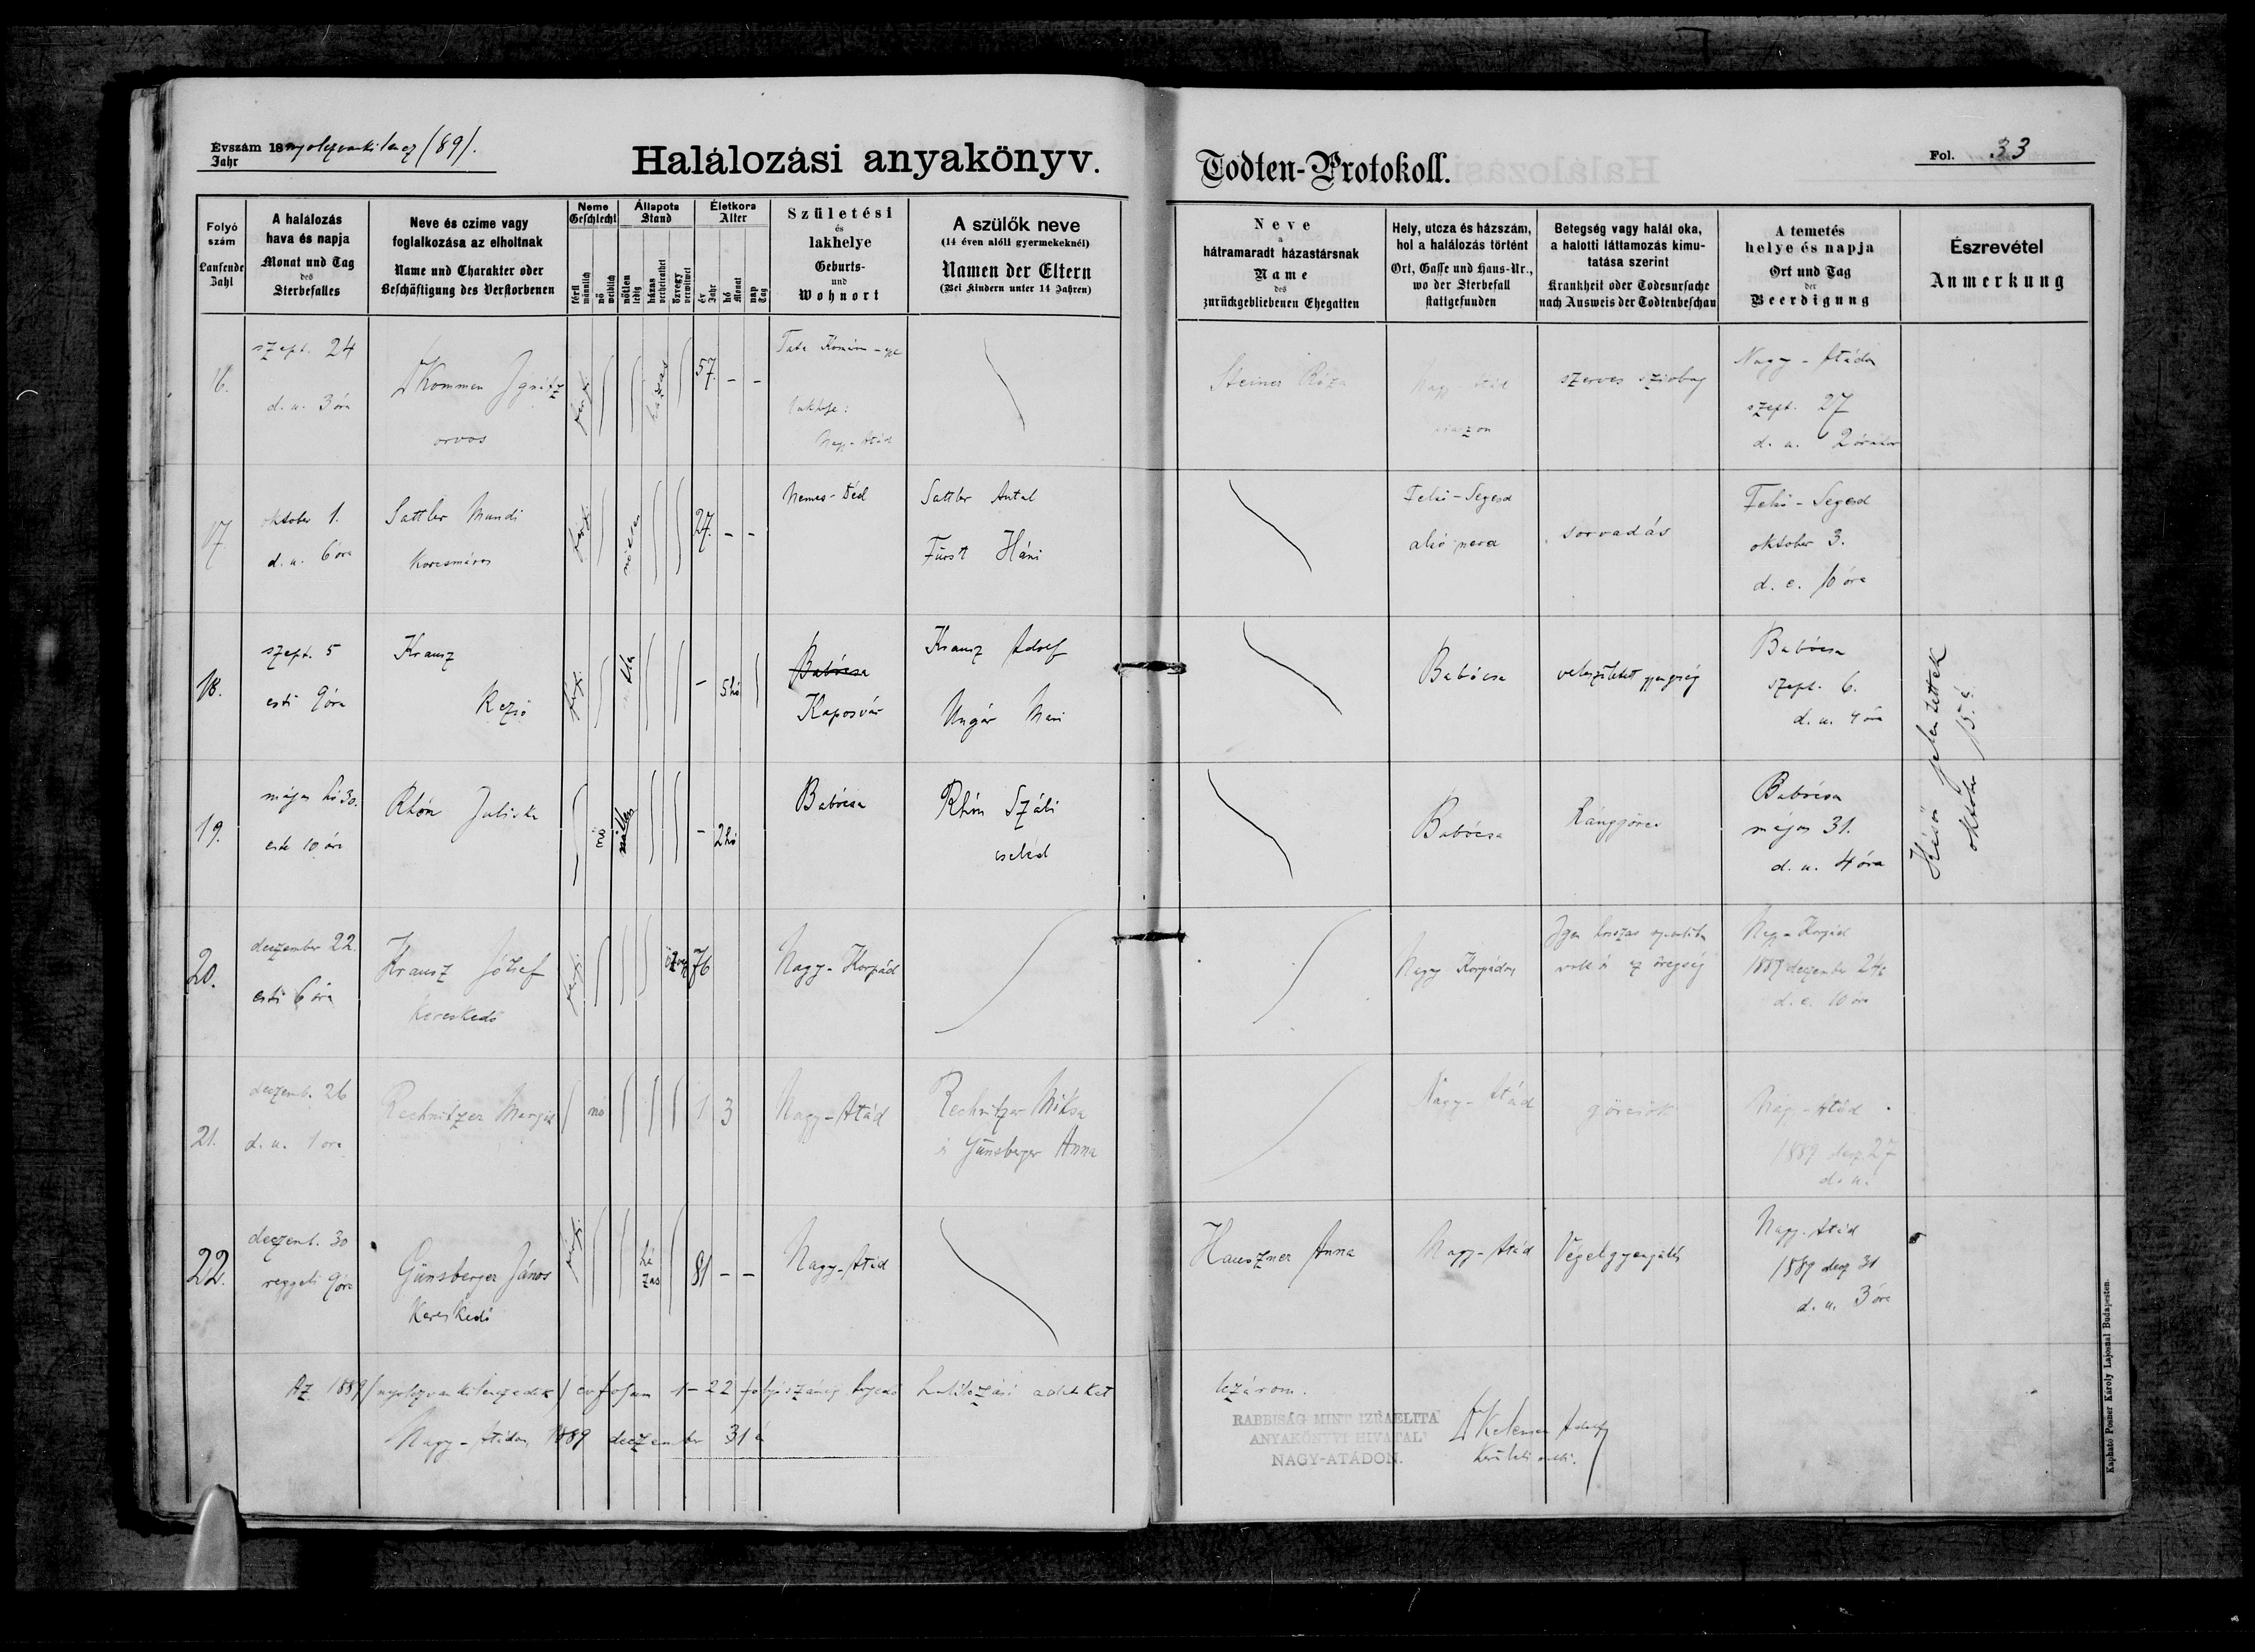 Évszám 18 nyolczvankilencz (89).
Jahr
Halálozási anyakönyv.
Todten-Protokoll.
Fol. 33
Folyó szám
Laufende Zahl
A halálozás hava és napja
Monat und Tag des Sterbefalles
Neve és czime vagy foglalkozása az elholtnak
Name und Charakter oder Beschäftigung des Verstorbenen
Neme
Geschlecht
férfi männlich
nő weiblich
Állapota
Stand
nőtlen ledig
házas verheirathet
özvegy verwitwet
Életkora
Alter
év Jahr
hó Monat
nap Tag
Születési és lakhelye
Geburts- und Wohnort
A szülők neve
(14 éven alóli gyermekeknél)
Namen der Eltern
(Bei Kindern unter 14 Jahren)
Neve a hátramaradt házastársnak
Name des zurückgebliebenen Ehegatten
Hely, utcza és házszám, hol a halálozás történt
Ort, Gasse und Haus-Nr., wo der Sterbefall stattgefunden
Betegség vagy halál oka, a halotti láttamozás kimutatása szerint
Krankheit oder Todesursache nach Ausweis der Todtenbeschau
A temetés helye és napja
Ort und Tag der Beerdigung
Észrevétel
Anmerkung
16.
szept. 24
d. u. 3 óra
Ignátz
orvos
férfi
házas
57. - -
Tata
Nagy-Atád
Steiner Róza
Nagy Atád
szerves szivbaj
Nagy-Atádon
szept. 27
d. u. 2 órakor
17.
oktober 1.
d. u. 6 óra
Sattler Mundi
Korcsmáros
férfi
nőtlen
27. - -
Nemes-Déd
Sattler Antal
Fürst Háni
Felső-Segesd
sorvadás
Felső-Segesd
oktober 3.
d. e. 10 óra
18.
szept. 5
esti 9 óra
Krausz
Rezső
férfi
- 5 hó
Babócsa
Kaposvár
Krausz Adolf
Ungár Mari
Babócsa
veleszületett gyengeség
Babócsa
szept. 6.
d. u. 4 óra
Későn jelentettek
oktober 15. é
19.
május hó 30.
este 10 óra
Rhón Juliska
nő
nőtlen
- 2 hó
Babócsa
Rhón Száli
cseléd
Babócsa
Rángyörcs
Babócsa
május 31.
d. u. 4 óra
20.
deczember 22.
esti 6 óra
Krausz József
Kereskedő
férfi
özvegy
76
Nagy-Korpád
Nagy Korpádon
az öregség
Nagy-Korpád
1889 deczember 24
d. e. 10 óra
21.
deczemb. 26
d. u. 1 óra
Rechnitzer Margit
nő
1 3
Nagy-Atád
Rechnitzer Miksa
és Günsberger Anna
Nagy-Atád
görcsök
Nagy-Atád
1889 decz 27
d. u.
22.
deczemb. 30
reggeli 9 óra
Günsberger János
Kereskedő
férfi
házas
81 - -
Nagy-Atád
Hauszner Anna
Nagy-Atád
Végelgyengülés
Nagy-Atád
1889 decz 31
d. u. 3 óra
Az 1889 (nyolczvankilenczedik) évfolyam 1-22 folyószámig terjedő halálozási adatokat lezárom.
Nagy-Atádon, 1889 deczember 31 é
RABBISÁG MINT IZRAELITA
ANYAKÖNYVI HIVATAL
NAGY-ATÁDON.
Kelemen Adolf
Kerületi
Kapható Posner Károly Lajosnál Budapesten.